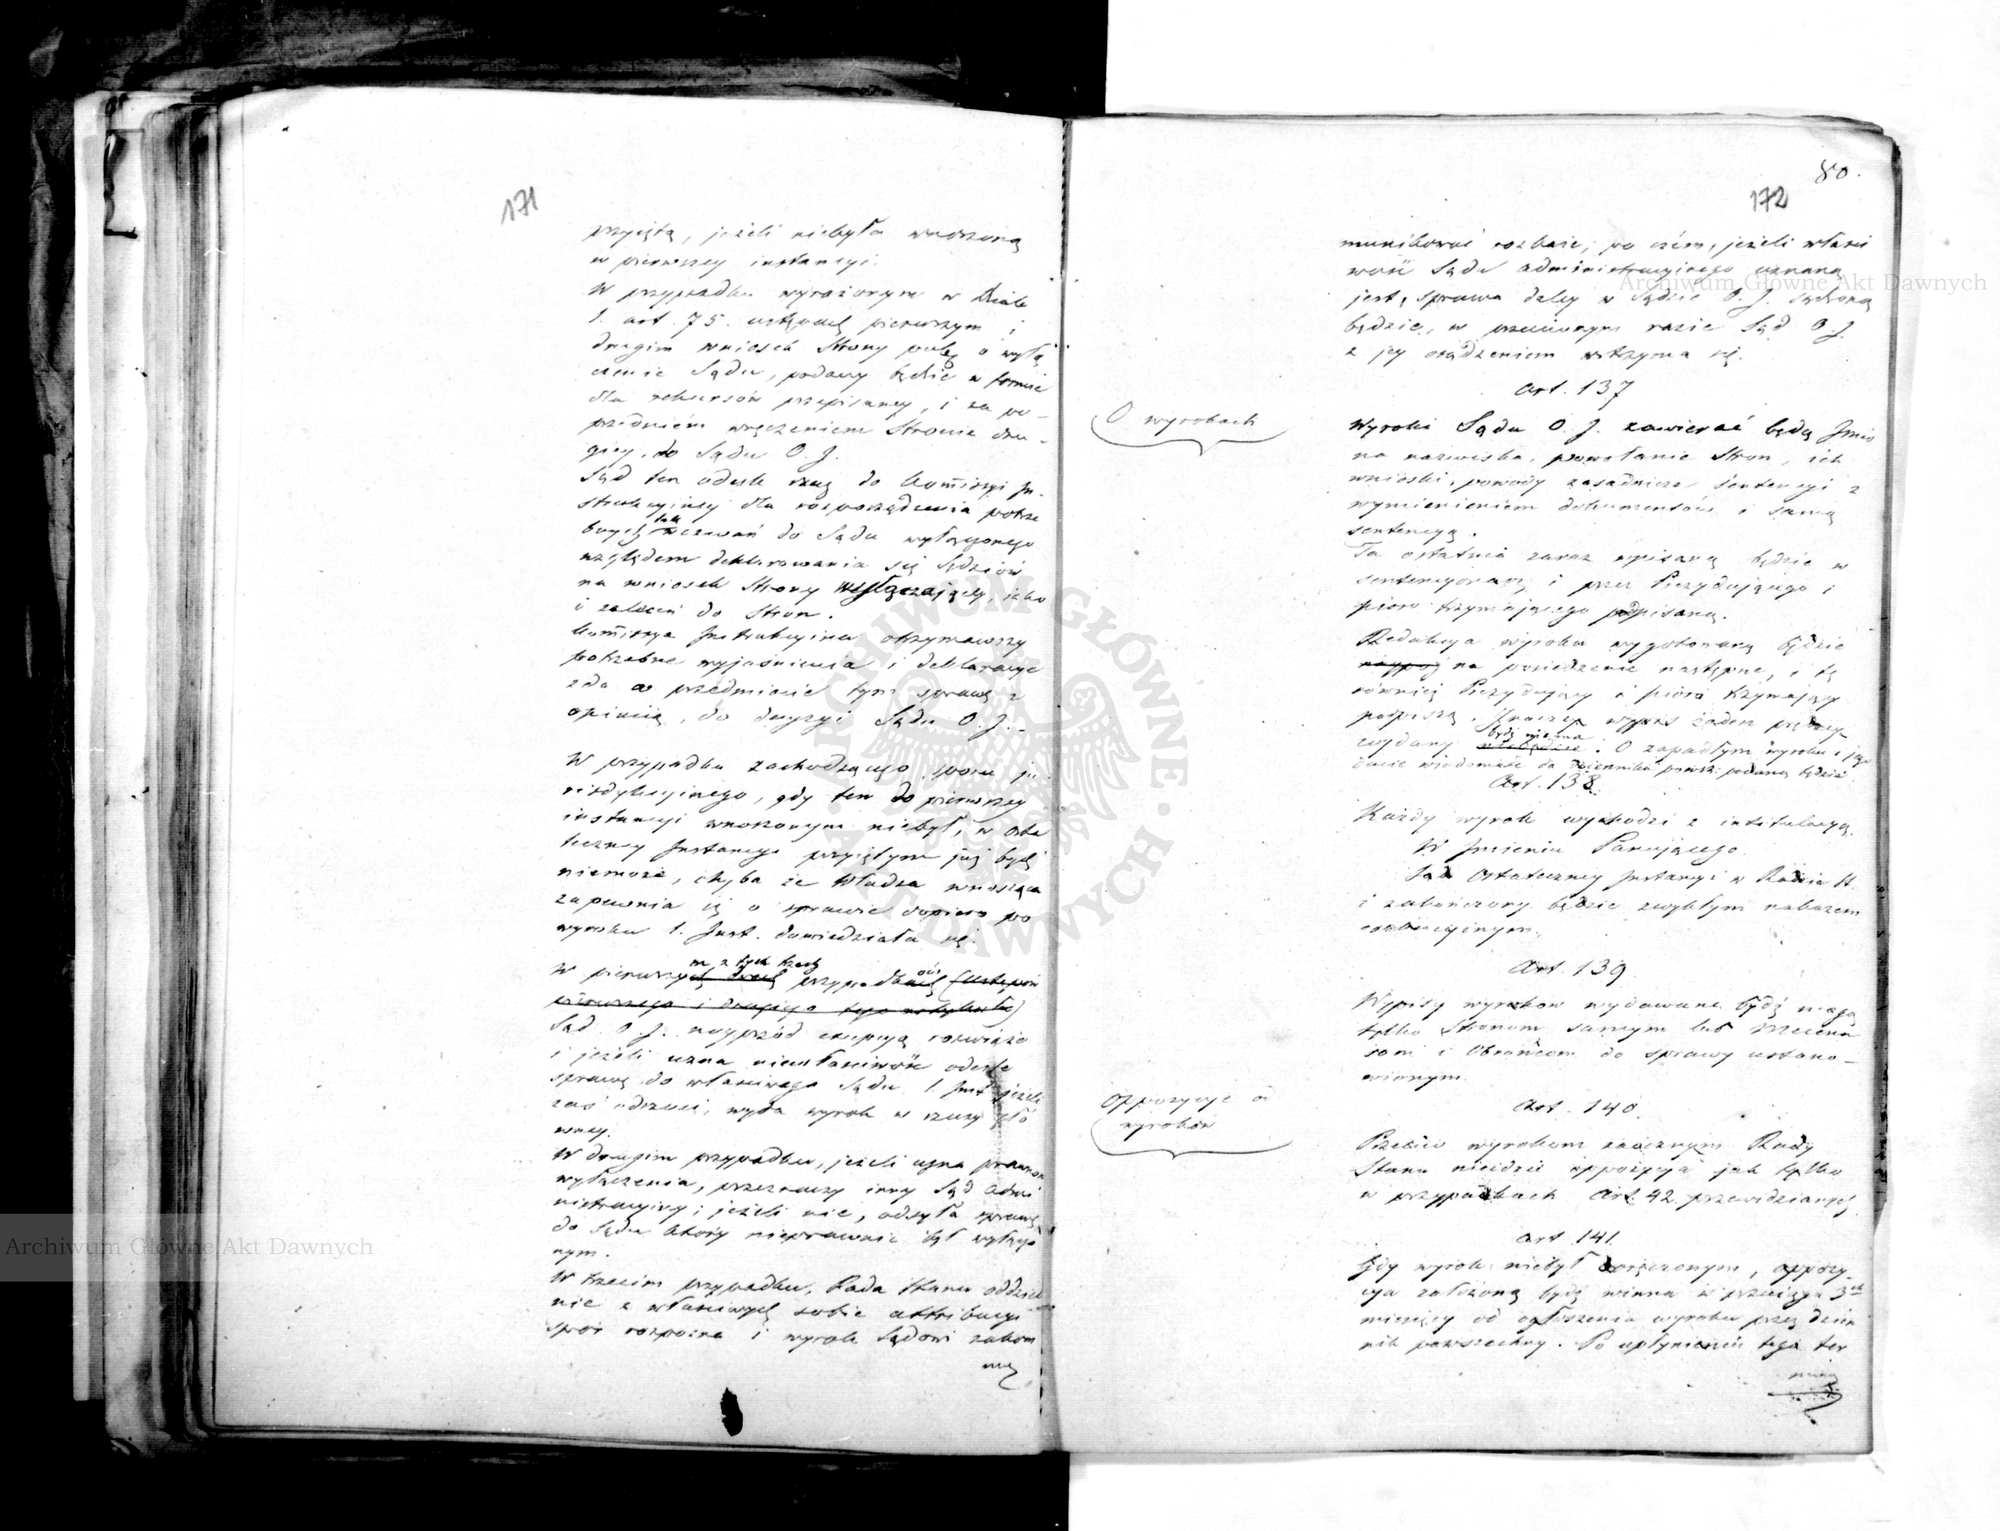 171
przyiętą, jeżeli niebyła wnoszoną
w pierwszey instancyi.
W przypadku wyrażonym w Dziale
1. art. 75. ustępach pierwszym i
drugim wniosek Strony o wyłą
czenie Sądu, podany będzie w formie
dla rekursów przepisaney, i za po-
przedniém wręczeniem Stronie dru-
giey, do Sądu O. J.
Sąd ten odeśle rzecz do Kommissyi In-
strukcyiney dla rozporządzenia potrze
bnych tak wezwań do Sądu wyłączonego
względem deklarowania się Sędziów
na wniosek Strony wyłączaiącéy, iako
i zaleceń do Stron.
Kommissya Instrukcyina otrzymawszy
potrzebne wyjaśnienia i deklaracye
zda w przedmiocie tym sprawę z
opinią, do decyzyi Sądu O. J. -
W przypadku zachodzącego sporu ju-
risdykcyinego, gdy ten do pierwszey
instancyi wnoszonym niebył, w osta
teczney Instancyi przyiętym już bydź
niemoże, chyba że Władza wnosząca
zapewnia iż o sprawie dopiero po
wyroku 1. Inst. dowiedziała się.
m z tych trzech
W pierwszych dwóch przypadkach (ustępów
pierwszego i drugiego tego artykułu)
Sąd O. J. nayprzód excepcyą rozwiąże
i jeżeli uzna niewłaściwość odeśle
sprawę do właściwego Sądu 1. Inst. jeżeli
zaś odrzuci, wyda wyrok w rzeczy głó
wney.
W drugim przypadku, jeżeli uzna prawność
wyłączenia, przeznaczy inny Sąd Admi
nistracyiny; jeżeli nie, odsyła sprawę
do Sądu który nieprawnie był wyłączo
nym.
W trzecim przypadku, Rada Stanu oddziel
nie z właściwych sobie attrybucyi
spór rozpozna i wyrok Sądowi zakom
80.
172
munikować rozkaże; po czém, jeżeli właści
wość Sądu administracyinego uznaną
jest, sprawa daley w Sądzie O. J. sądzoną
będzie, w przeciwnym razie Sąd O. J.
z jey osądzeniem wstrzyma się.
Art. 137
O wyrokach
Wyroki Sądu O. J. zawierać będą Imio
na nazwiska, powołanie Stron, ich
wnioski, powody zasadnicze sentencyi z
wymienieniem dokumentów i samą
sentencyą.
Ta ostatnia zaraz wpisaną będzie w
sentencyonarz i przez Prezyduiącego i
pióro trzymaiącego podpisaną.
Redakcya wyroku wygotowaną będzie
na posiedzenie następne, i tę
również Prezyduiący i pióro trzymaiący
podpiszą. Inaczey wypis żaden prędzey
bydź niema
wydany niebędzie. O zapadłym wyroku i jego
dacie wiadomość do Dziennika powsz: podaną będzie
Art. 138.
Każdy wyrok wychodzi z intitulacyą.
W Imieniu Panuiącego.
Sąd Ostateczney Instancyi w Radzie St.
i zakończony będzie zwykłym nakazem
exekucyinym.
Art. 139
Wypisy wyroków wydawane bydź mogą
tylko Stronom samym lub Mecena
som i Obrońcom do sprawy ustano-
wionym.
Art. 140.
oppozycye od
wyroków
Przeciw wyrokom zaocznym Rady
Stanu nieidzie oppozycya jak tylko
w przypadkach Art. 42. przewidzianych.
Art 141.
Gdy wyrok niebył doręczonym, oppozy-
cya założoną bydź winna w przeciągu 3ch
miesięcy od ogłoszenia wyroku przez dzien
nik powszechny. Po upłynieniu tego ter
Archiwum Główne Akt Dawnych
Archiwum Główne Akt Dawnych
ARCHIWUM GŁÓWNE AKT DAWNYCH